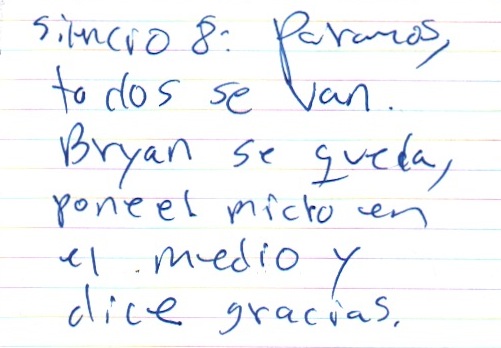 silencio 8: Paramos,
todos se van.
Bryan se queda,
pone el micro en
el medio y
dice gracias.